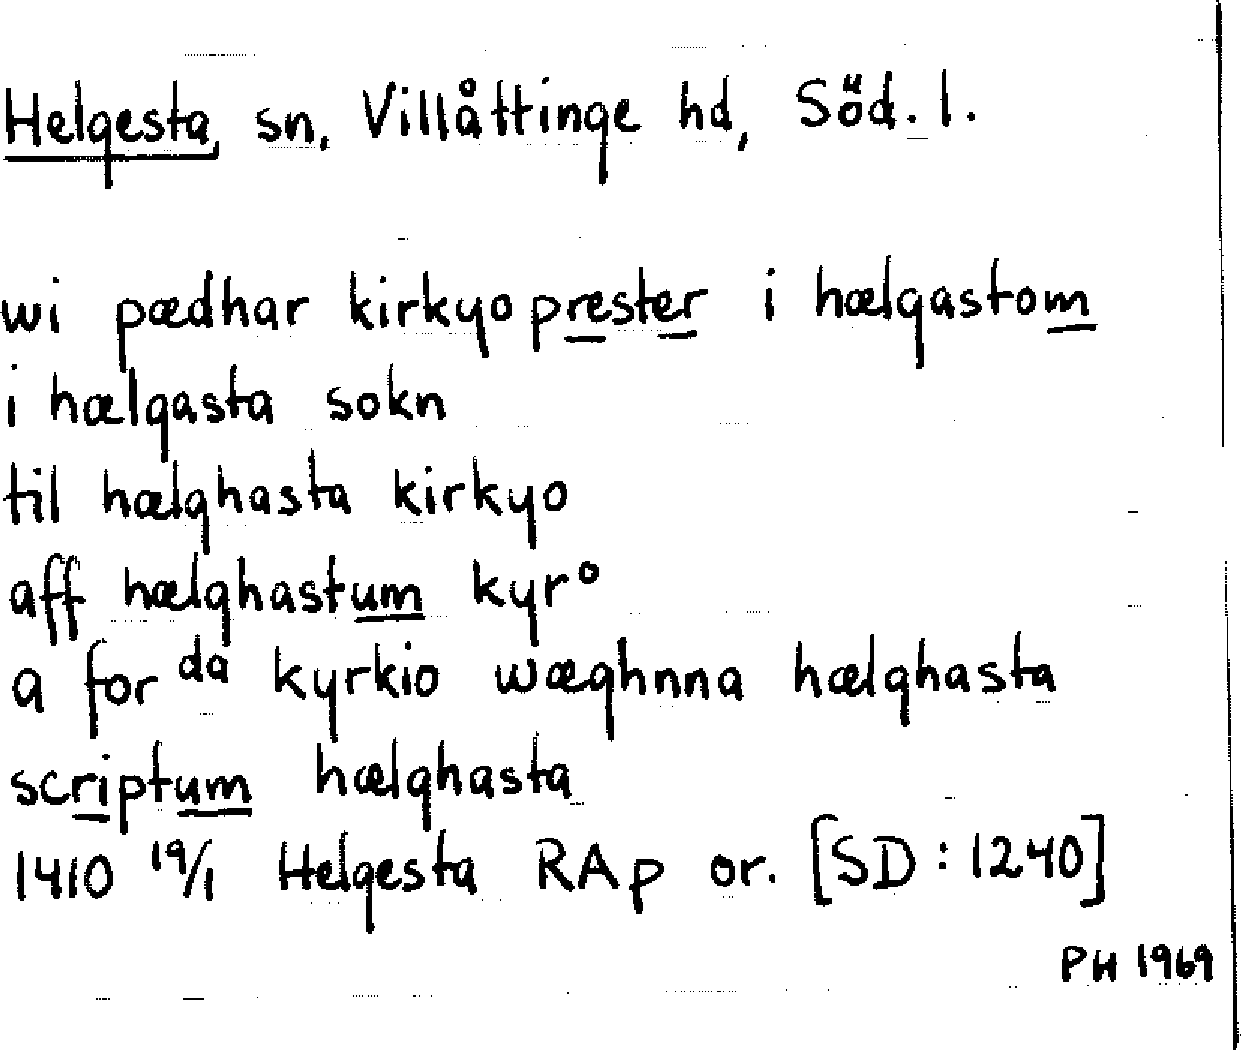 Helgesta, sn, Villåttinge hd, Söd. l.
wi pædhar kirkyoprester i hælgastom
i hælgasta sokn
til hælghasta kirkyo
aff hælghastum kyrº
a for da kyrkio wæghnna hælghasta
scriptum hælghasta
1410 19/1 Helgesta RAp or. [SD : 1240]
PH 1969